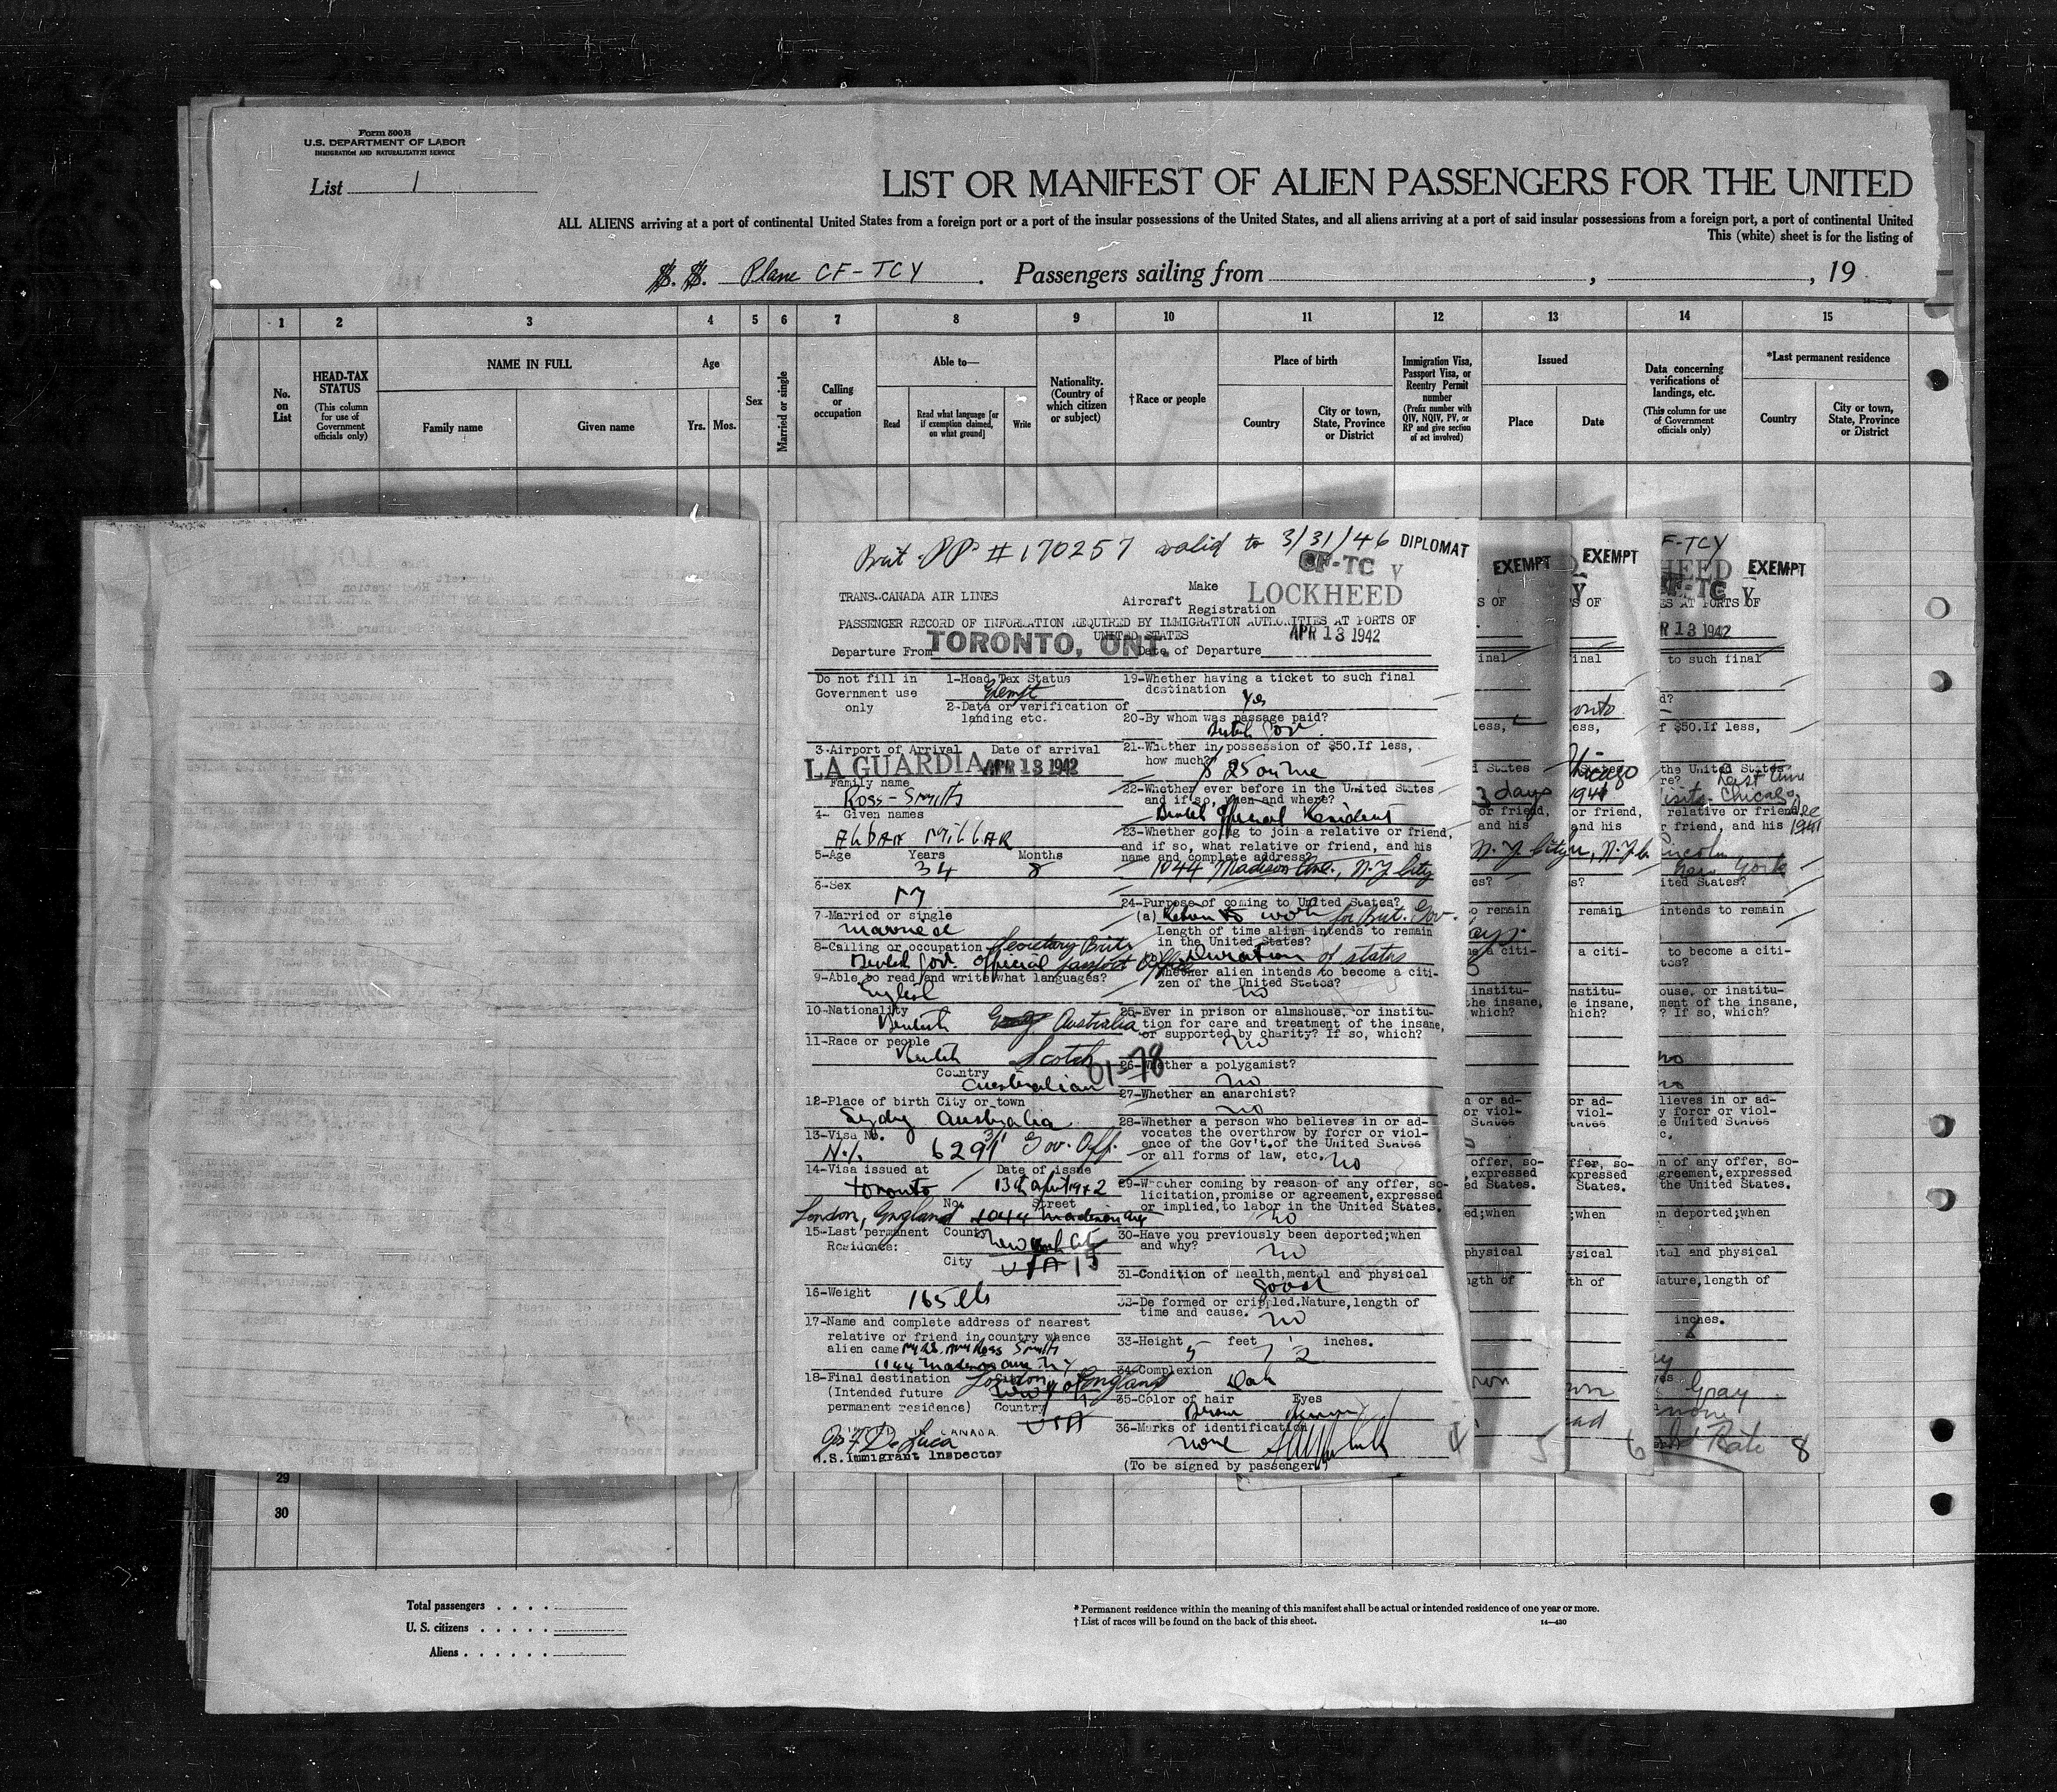 Form 500 B
U.S. DEPARTMENT OF LABOR
IMMIGRATION AND NATURALIZATION SERVICE
List 1
LIST OR MANIFEST OF ALIEN PASSENGERS FOR THE UNITED
ALL ALIENS arriving at a port of continental United States from a foreign port or a port of the insular possessions of the United States, and all aliens arriving at a port of said insular possessions from a foreign port, a port of continental United
This (white) sheet is for the listing of
S. S. Plane CF-TCY. Passengers sailing from , , 19
1 2 3 4 5 6 7 8 9 10 11 12 13 14 15
No. on List
HEAD-TAX STATUS
(This column for use of Government officials only)
NAME IN FULL
Family name Given name
Age
Yrs. Mos.
Sex
Married or single
Calling or occupation
Able to—
Read
Read what language [or if exemption claimed, on what ground]
Write
Nationality. (Country of which citizen or subject)
†Race or people
Place of birth
Country
City or town, State, Province or District
Immigration Visa, Passport Visa, or Reentry Permit number
(Prefix number with QIV, NQIV, PV, or RP and give section of act involved)
Issued
Place Date
Data concerning verifications of landings, etc.
(This column for use of Government officials only)
*Last permanent residence
Country
City or town, State, Province or District
Brit. PP # 170257 valid to 3/31/46 DIPLOMAT
CF-TC V
TRANS-CANADA AIR LINES
Aircraft Make LOCKHEED
Registration
PASSENGER RECORD OF INFORMATION REQUIRED BY IMMIGRATION AUTHORITIES AT PORTS OF
UNITED STATES
APR 13 1942
Departure From TORONTO, ONT. Date of Departure
Do not fill in
Government use
only
1-Head Tax Status
Exempt
2-Data or verification of
landing etc.
3-Airport of Arrival Date of arrival
LA GUARDIA APR 13 1942
Family name
Ross-Smith
4- Given names
5-Age Years Months
34 8
6-Sex
M
7-Married or single
Married
8-Calling or occupation Secretary Brit.
British Gov. Official Passport Office
9-Able to read and write what languages?
English
10-Nationality
British Australia
11-Race or people
British Scotch
Country
Australian
01-78
12-Place of birth City or town
Sydney Australia
13-Visa No.
6291 Gov. Off.
14-Visa issued at Date of issue
Toronto 13th April 1942
No. Street
London, England 1044 Madison Ave
15-Last permanent Country New York City
Residence:
City USA
16-Weight
165 lbs
17-Name and complete address of nearest
relative or friend in country whence
alien came Mrs. Ross Smith
1044 Madison Ave N.Y.
18-Final destination London, England
(Intended future
permanent residence) Country
USA
IN CANADA
Jos F De Luca
U.S. Immigrant Inspector
19-Whether having a ticket to such final
destination
Yes
20-By whom was passage paid?
British Gov.
21-Whether in possession of $50.If less,
how much?
$ 25 on me
22-Whether ever before in the United States
and if so, when and where?
British Official Resident
23-Whether going to join a relative or friend,
and if so, what relative or friend, and his
name and complete address?
1044 Madison Ave., N.Y. City
24-Purpose of coming to United States?
(a) Return to work for Brit. Gov.
Length of time alien intends to remain
in the United States?
Duration of status
Whether alien intends to become a citi-
zen of the United States?
no
25-Ever in prison or almshouse, or institu-
tion for care and treatment of the insane,
or supported by charity? If so, which?
no
26-Whether a polygamist?
no
27-Whether an anarchist?
no
28-Whether a person who believes in or ad-
vocates the overthrow by forcr or viol-
ence of the Gov't.of the United States
or all forms of law, etc. no
29-Whether coming by reason of any offer, so-
licitation,promise or agreement,expressed
or implied,to labor in the United States.
no
30-Have you previously been deported;when
and why?
no
31-Condition of health,mental and physical
good
32-De formed or crippled.Nature,length of
time and cause.
no
33-Height 5 feet 7 1/2 inches.
34-Complexion
Dark
35-Color of hair Eyes
Brown
36-Marks of identification
none
(To be signed by passenger)
4
EXEMPT
3 days
N.Y. City
5
EXEMPT
Chicago
6
F-TCY
EXEMPT
R 13 1942
to such final
f $50.If less,
the United States
Chicago
Dec
1941
relative or friend,
r friend, and his
Lincoln
New York
ited States?
intends to remain
to become a citi-
no
no
inches.
Gray
none
8
29
30
Total passengers
U. S. citizens
Aliens
* Permanent residence within the meaning of this manifest shall be actual or intended residence of one year or more.
† List of races will be found on the back of this sheet.
14—430